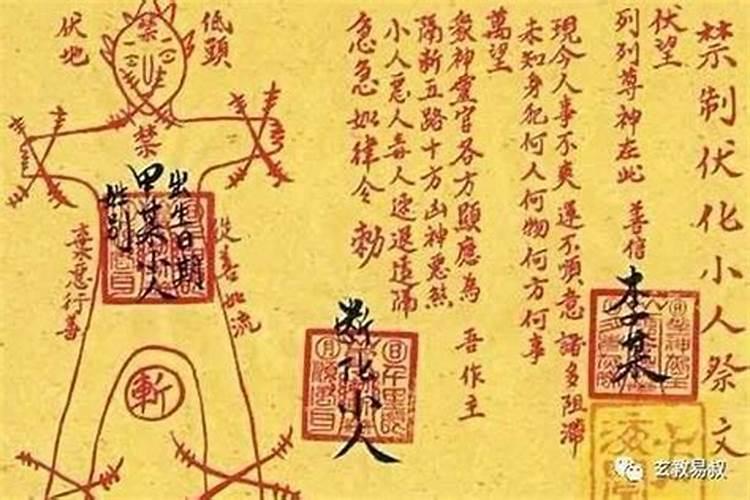 禁制伏化小人祭文
伏望
列列尊神在此 善信 李某
現今人事不爽 運不順意 諸多阻滯
未知身犯何人何物何方何事
萬望
眾神靈官各方顯應為 吾作主
隔斷五路十方凶神惡煞
小人惡人毒人速退遠隔
急急如律令 勅
斷化小人
低頭
禁
伏地
禁
出生日期
甲某小人
姓別
從善如流
棄惡行善
斬
玄教易叔